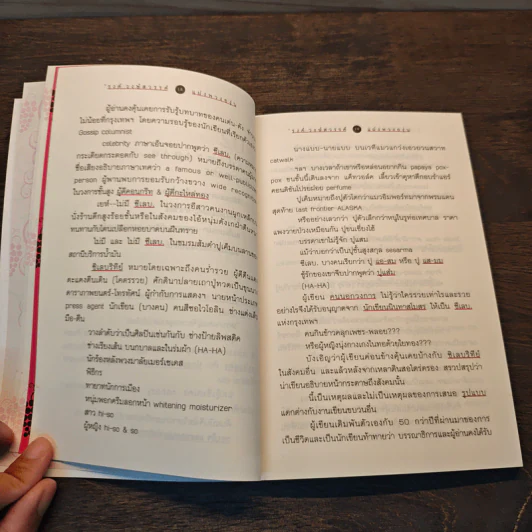 ผู้อ่านคงคุ้นเคยการรับรู้บทบาทของคนเด่น-ดัง
ไม่น้อยที่กรุงเทพฯ โดยความรอบรู้ของนักเขียนที่เรียกตัวเอง
Gossip columnist
celebrity ภาษาเอียนจ่อยปากพูดว่า ซีเลบ.
กระเดียดกระดอดกับ see through) หมายถึงบรรดาคน
ชื่อเสียงอธิบายภาษาเทศว่า a famous or well-publicized
person ผู้พานพบการยอมรับกว้างขวาง wide recognition
ในวงการชั้นสูง ผู้ดีดอนกรีซ & ผู้ดีกะไหล่ทอง
เยห์—ไม่มี ซีเลบ. ในวงการอีสาวคนงานผูกเหล็ก
นั่งร้านตึกสูงร้อยชั้นหรือในสังคมของไอ้หนุ่มดังเถ้าดิน
ทนทานกับโคนเปลือกหอยบาดบนผืนทราย
ไม่มี และ ไม่มี ซีเลบ. ในชมรมส้มตำปูเค็มบนลาน
สถานีบริการน้ำมัน
ซีเลบริทีย์ หมายโดยเฉพาะถึงคนร่ำรวย ผู้ดีตีนแดง
ตะแคงตีนเดิน (โคตรรวย) ศักดินาปลายเถาปู่ทวดเป็นขุนนาง
ดาราภาพยนตร์-โทรทัศน์ ผู้กำกับการแสดงฯ นายหน้าประเภท
press agent นักเขียน (บางคน) คนสีซอไวโอลิน ช่างแต่ง
มือ-ตีน
วางลำดับว่าเป็นศิลปินเช่นกันกับ ช่างป้ายลิพสติค
ช่างเรียงเส้น บนกบาลและในร่มผ้า (HA-HA)
นักร้องหลังพวงมาลัยเมอร์เซเดส
พิธีกร
ทายาทนักการเมือง
หนุ่มพอกครีมลอกหน้า whitening moisturizer
สาว hi-so
ผู้หญิง hi-so & so
นางแบบ-นายแบบ บนเวทีแมวแกว่งเอวเยาะแสยาย
catwalk
ฯลฯ บางเวลาถ้าเขาหรือหล่อนอยากกิน papaya pok-
pok ขนชั้นนี้เดินลงจาก แค้ทวอล์ค เลี้ยวเข้าคูหาตึกอบร่ำแอร์
คอนดิชั่นโปรยปรอย perfume
ปูเค็มหมายถึงปูตัวโตกว่าแมวอิมพอร์ทมาจากพรมแดน
สุดท้าย last frontier ALASKA
หรืออย่างเลวกว่า ปูดำเลิกว่าหมู่ในรูท่อเทศบาล ราคา
แพงวายป่วงเหมือนกัน ปูขนเซี่ยงไฮ้
บรรดาเขาไม่รู้จัก ปูแสม
แม้ว่าบอกว่าเป็นปูชั้นสูงสกุล sesarma
ซีเลบ. บางคนเรียกว่า ปู แซ-สม หรือ ปู แส-มน
ชู้รักของเขาจีบปากพูดว่า ปูแสม
(HA-HA)
ผู้เขียน คนนอกวงการ ไม่รู้ว่าใครรวยเท่าไรและรวย
อย่างไรจึงได้รับอนุญาตจาก นักเขียนผินทาสโมสร ให้เป็น ซีเลบ.
แห่งกรุงเทพฯ
คนกินข้าวคลุกเพชร-พลอย???
หรือผู้หญิงนุ่งกางเกงในทอด้วยใยทอง???
บังเอิญว่าผู้เขียนค่อนข้างคุ้นเคยบ้างกับ ซีเลบริทีย์
ในสังคมอื่น และแล้วหลังจากเหลาดินสอไตร่ตรอง สรวปสรุปว่า
น่าเขียนอธิบายหน้ากระดาษถึงสังคมนั้น
นี้เป็นเหตุผลและไม่เป็นเหตุผลของการเสนอ รูปแบบ
แตกต่างกับงานเขียนขบวนอื่น
ผู้เขียนเดิมพันตัวเองกับ 50 กว่าปีที่ผ่านมาของการ
เป็นชีวิตและเป็นนักเขียนท้าทายว่า บรรณาธิการและผู้อ่านคงได้รับ